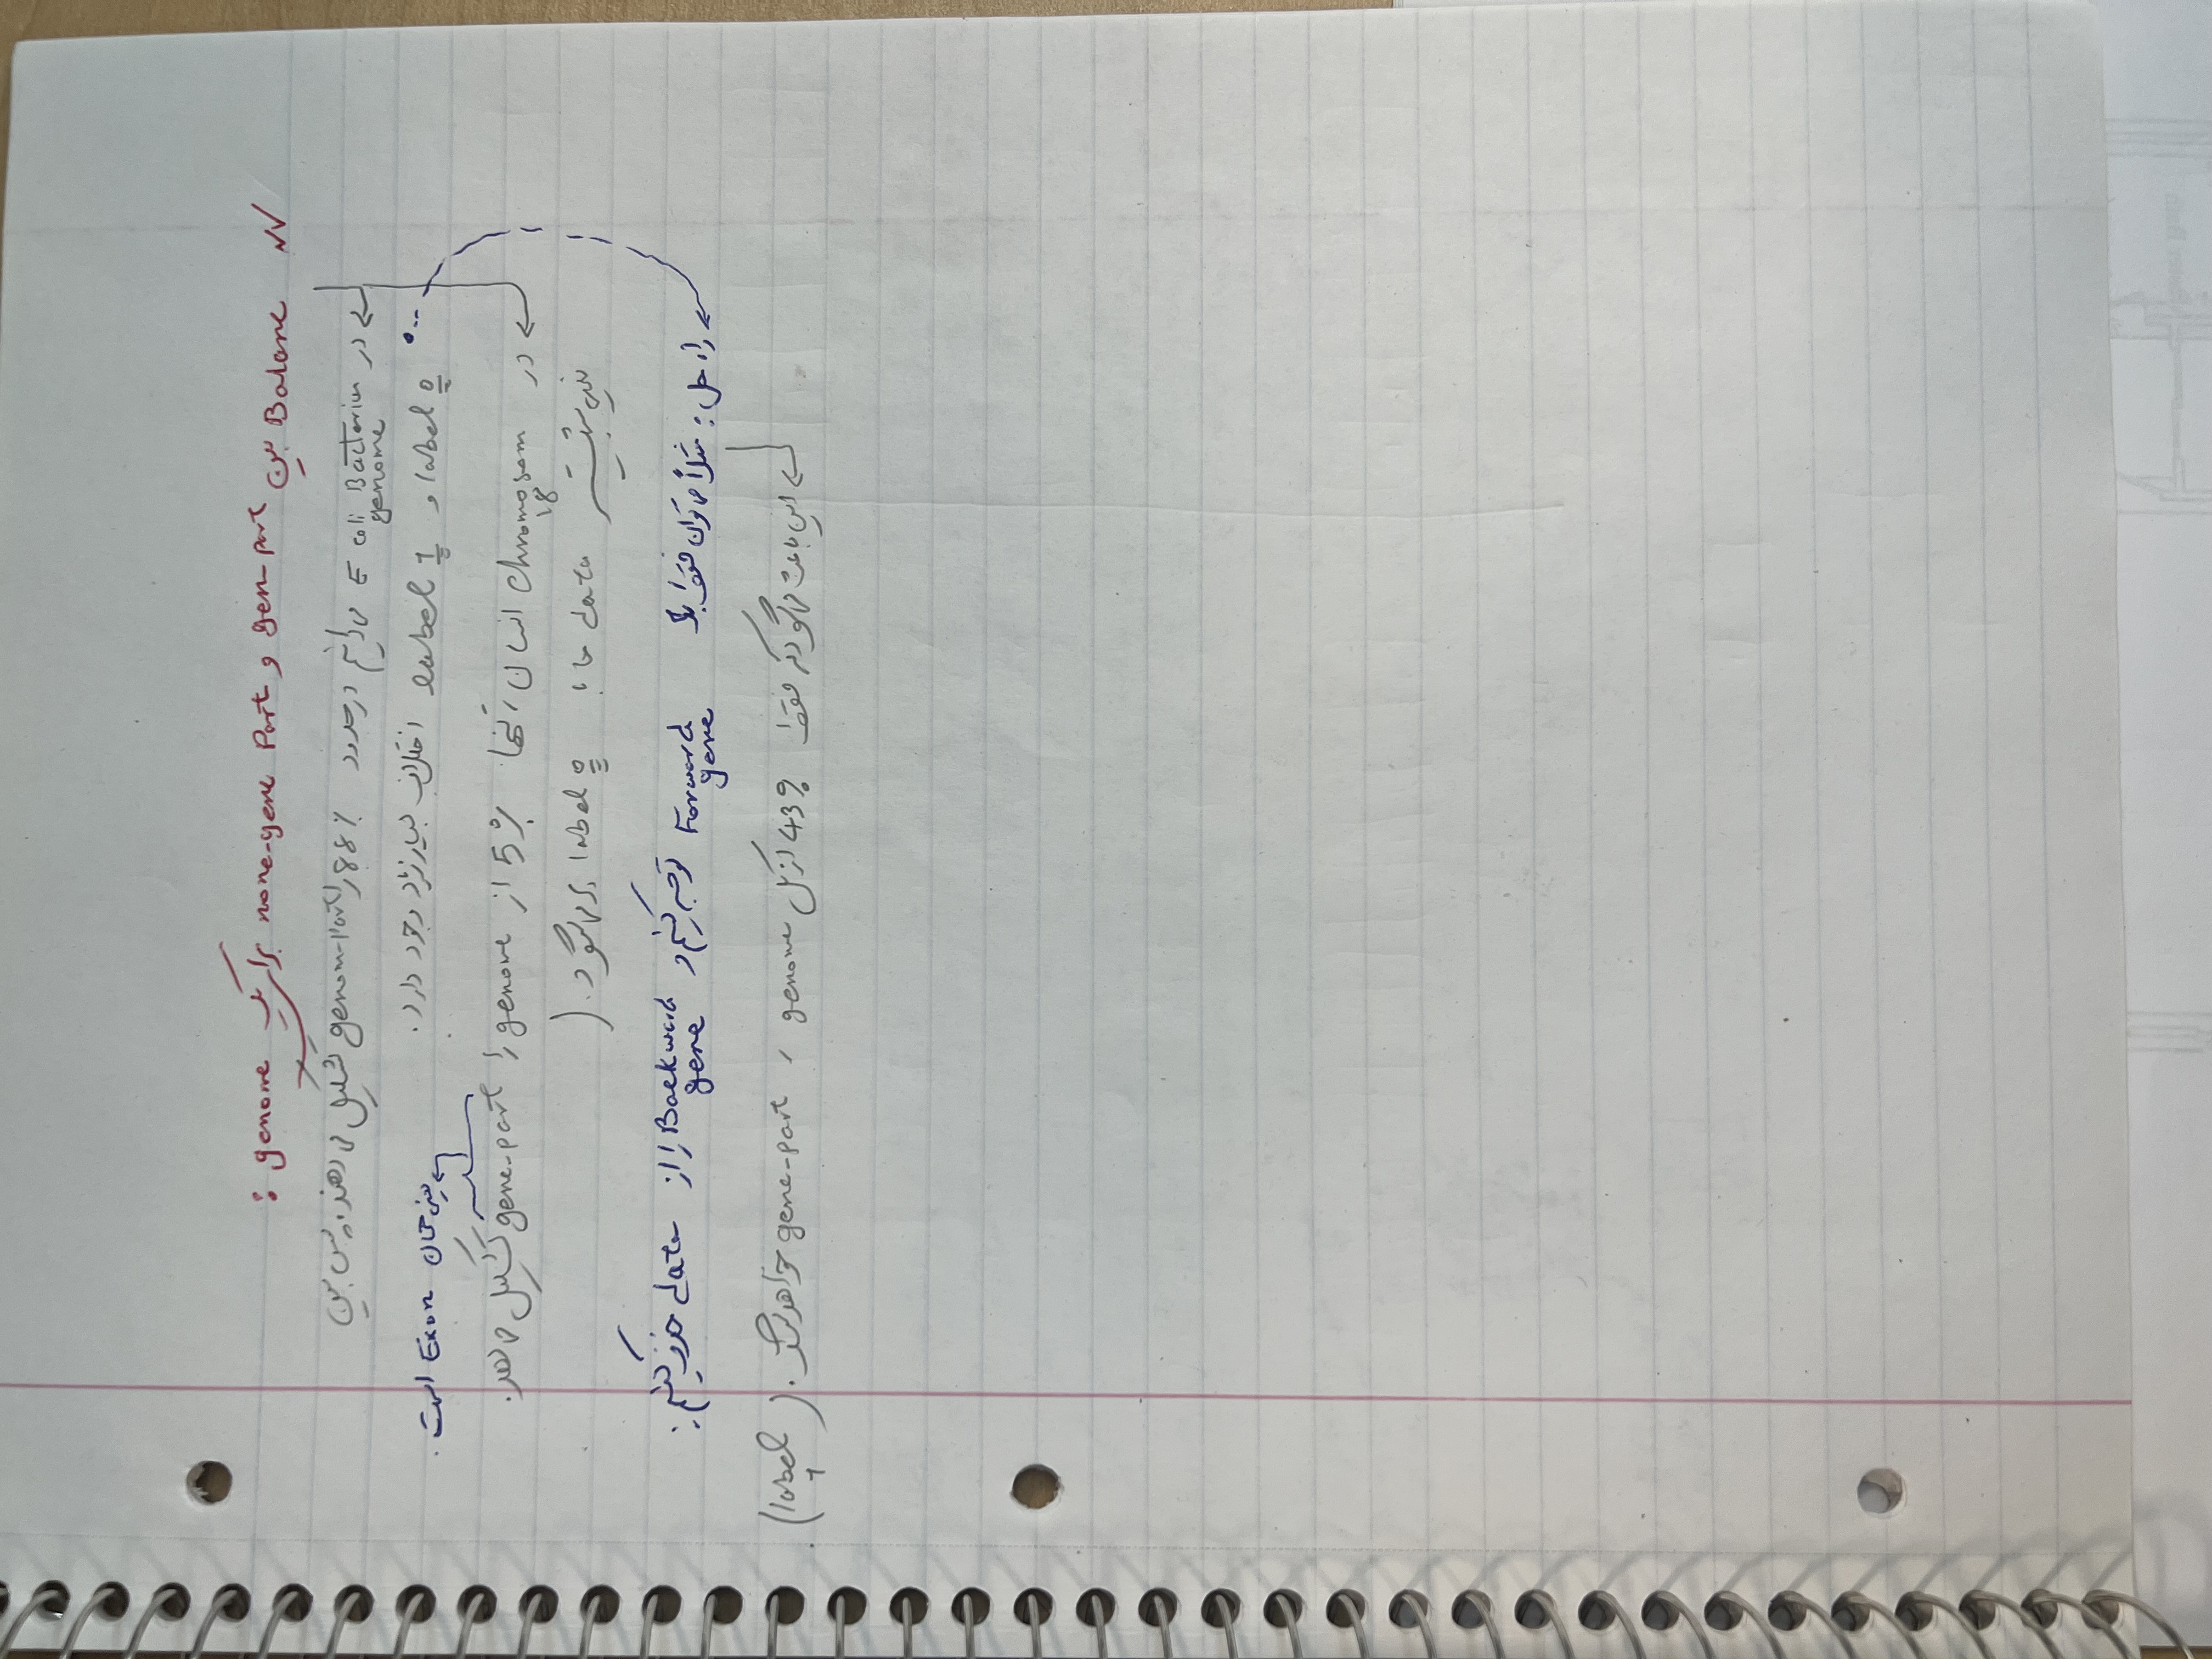 ✓✓ Balance بین gen-part و none-gene Part برای یک genome :
← در E coli Bacterium genome می‌دانیم در حدود 88% را genom-part تشکیل می دهند. پس بین
label 0 و label 1 اختلاف بسیار زیاد وجود دارد.
← یعنی همان Exon است.
← در chromosom 18 انسان، تنها 5% از genome را gene-part تشکیل می دهد.
یعنی بیشتر data ما با label 0 پر می‌شود. (
← راه حل : مثلاً می توان فقط به Forward gene توجه کنیم و Backward gene را از data حذف کنیم :
← این باعث می‌شود که فقط 43% از کل genome ، gene-part خواهد شد. (label 1).